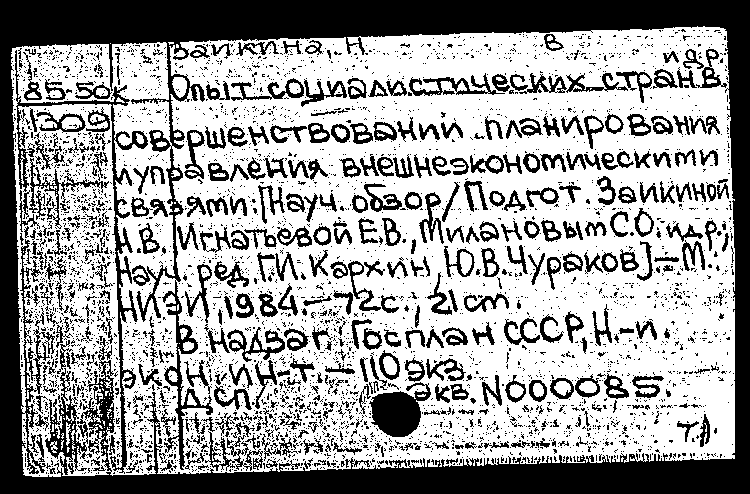 Заикина, Н. В
и др.
85-50к Опыт социалистических стран в
1309
совершенствовании планирования
и управления внешнеэкономическими
связями: [Науч. обзор / Подгот. Заикиной
Н.В. Игнатьевой Е.В., Милановым С.О. и др.;
Науч. ред. Г.И. Кархин, Ю.В. Чураков]. – М.:
НИЭИ, 1984. – 72с.; 21 см.
В надзаг. Госплан СССР, Н.-и.
экон. ин-т. – 110 экз.
ДСП экв. N000085.
Т.Д.